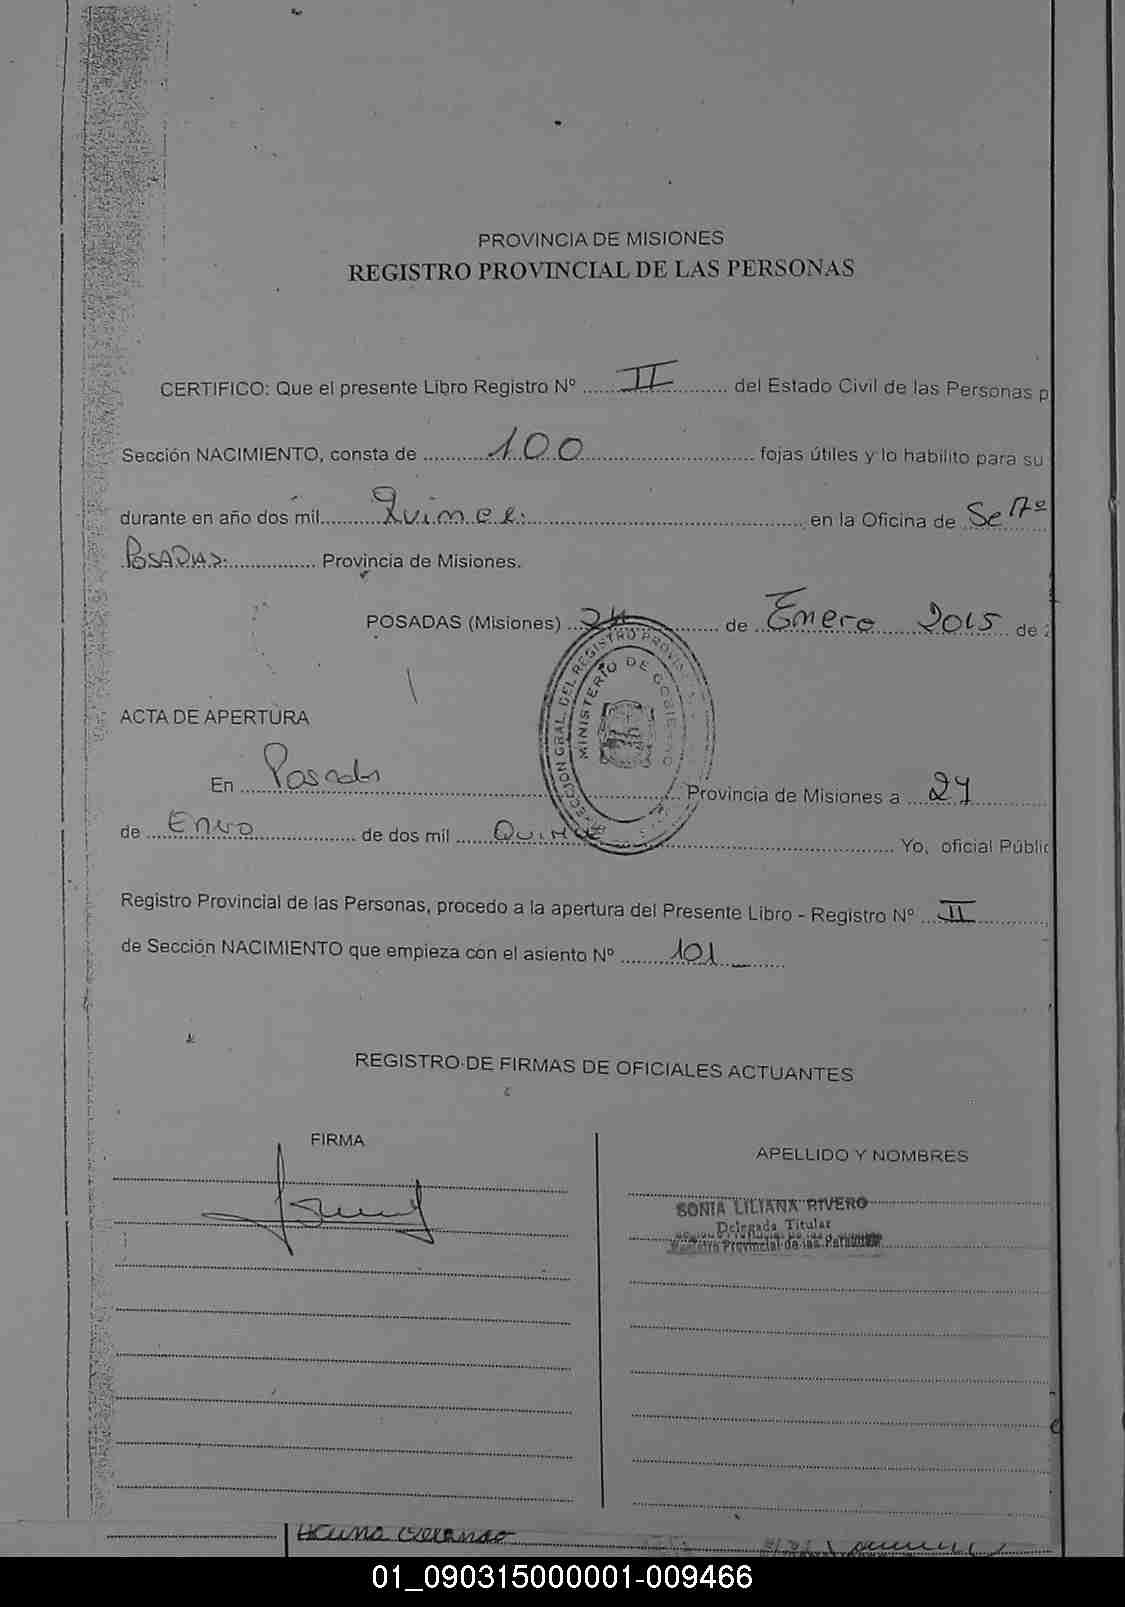 PROVINCIA DE MISIONES
REGISTRO PROVINCIAL DE LAS PERSONAS
CERTIFICO: Que el presente Libro Registro Nº ....... II ....... del Estado Civil de las Personas p
Sección NACIMIENTO, consta de ....... 100 ....... fojas útiles y lo habilito para su
durante en año dos mil ....... Quince ....... en la Oficina de
POSADAS ....... Provincia de Misiones.
POSADAS (Misiones) ....... de Enero 2015 de 2
DIRECCION GRAL. DEL REGISTRO PROVIN
MINISTERIO DE GOBIERNO
ACTA DE APERTURA
En ....... Posadas ....... Provincia de Misiones a ....... 24 .......
de ....... Enero ....... de dos mil ....... Quince ....... Yo, oficial Públic
Registro Provincial de las Personas, procedo a la apertura del Presente Libro - Registro Nº ....... II .......
de Sección NACIMIENTO que empieza con el asiento Nº ....... 101 .......
REGISTRO DE FIRMAS DE OFICIALES ACTUANTES
FIRMA
APELLIDO Y NOMBRES
SONIA LILIANA RIVERO
Delegada Titular
Registro Provincial de las Personas
01_090315000001-009466